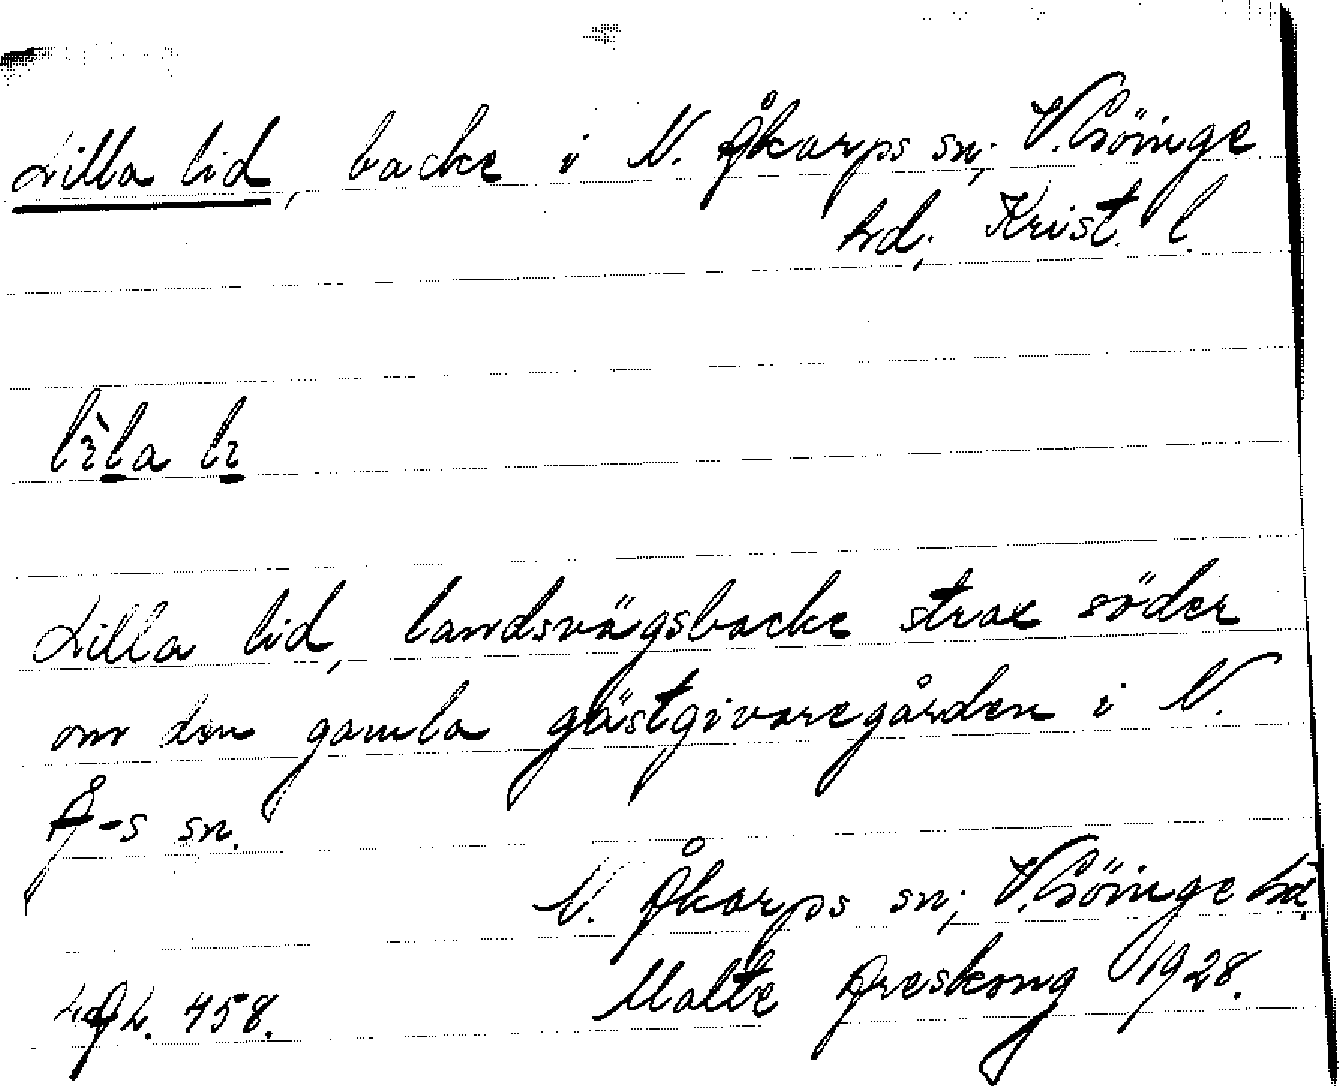 Lilla lid, backe i N. Åkarps sn; V. Göinge
hd; Krist. l.
lìla li
Lilla lid, landsvägsbacke strax söder
om den gamla gästgivaregården i N.
Å-s sn.
N. Åkarps sn; V. Göinge hd.
458. Malte Areskong 1928.